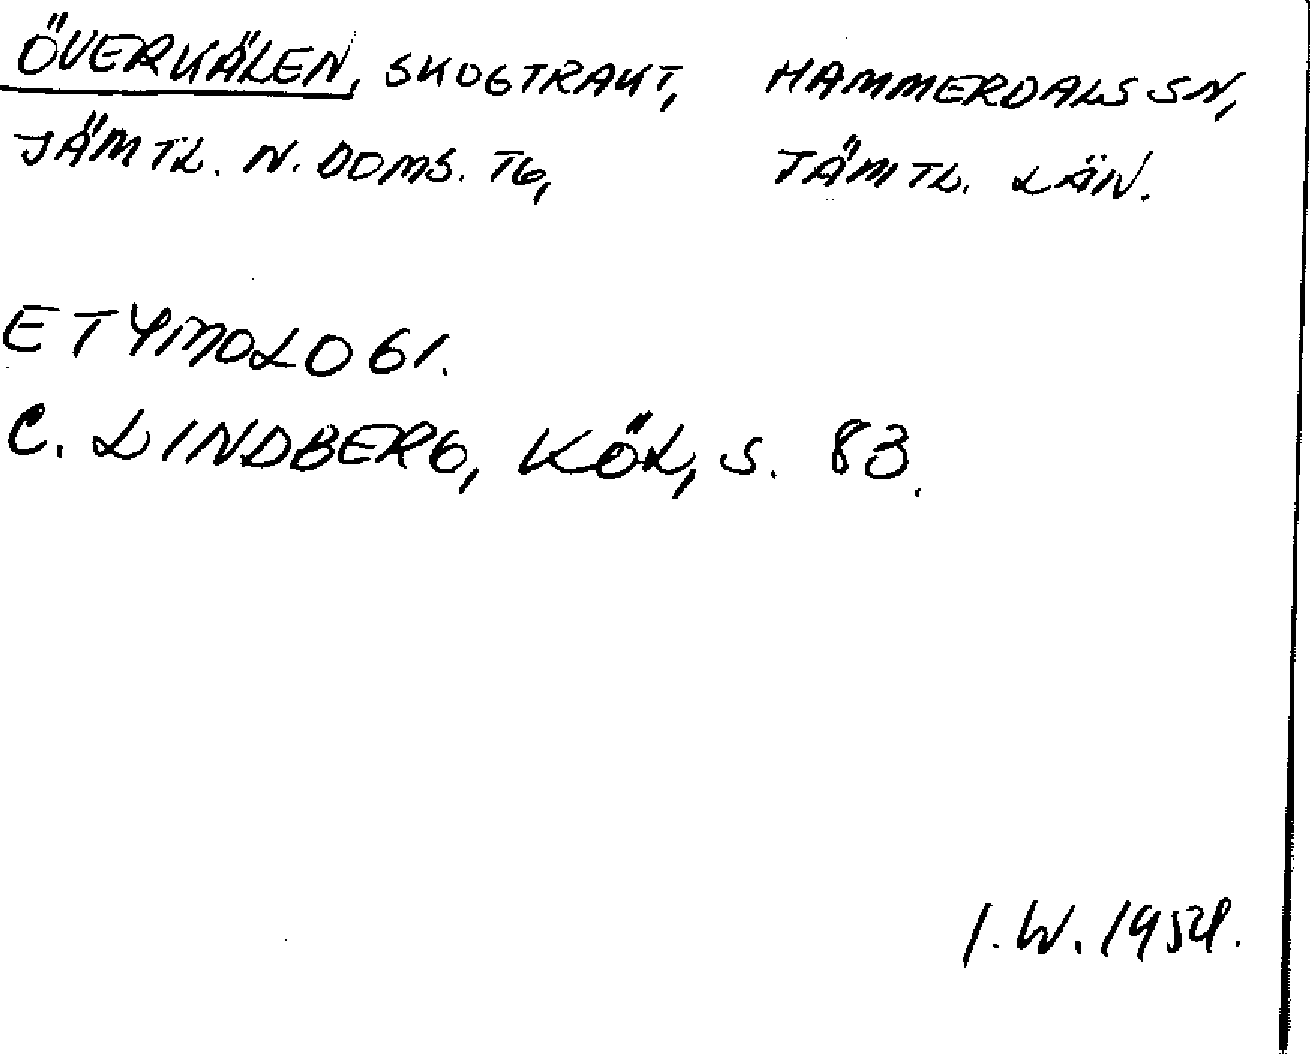 ÖVERKÄLEN, SKOGTRAKT, HAMMERDALS SN,
JÄMTL. N. DOMS. TG, JÄMTL. LÄN.
ETYMOLOGI.
C. LINDBERG, KÖL, S. 83.
I. W. 1954.